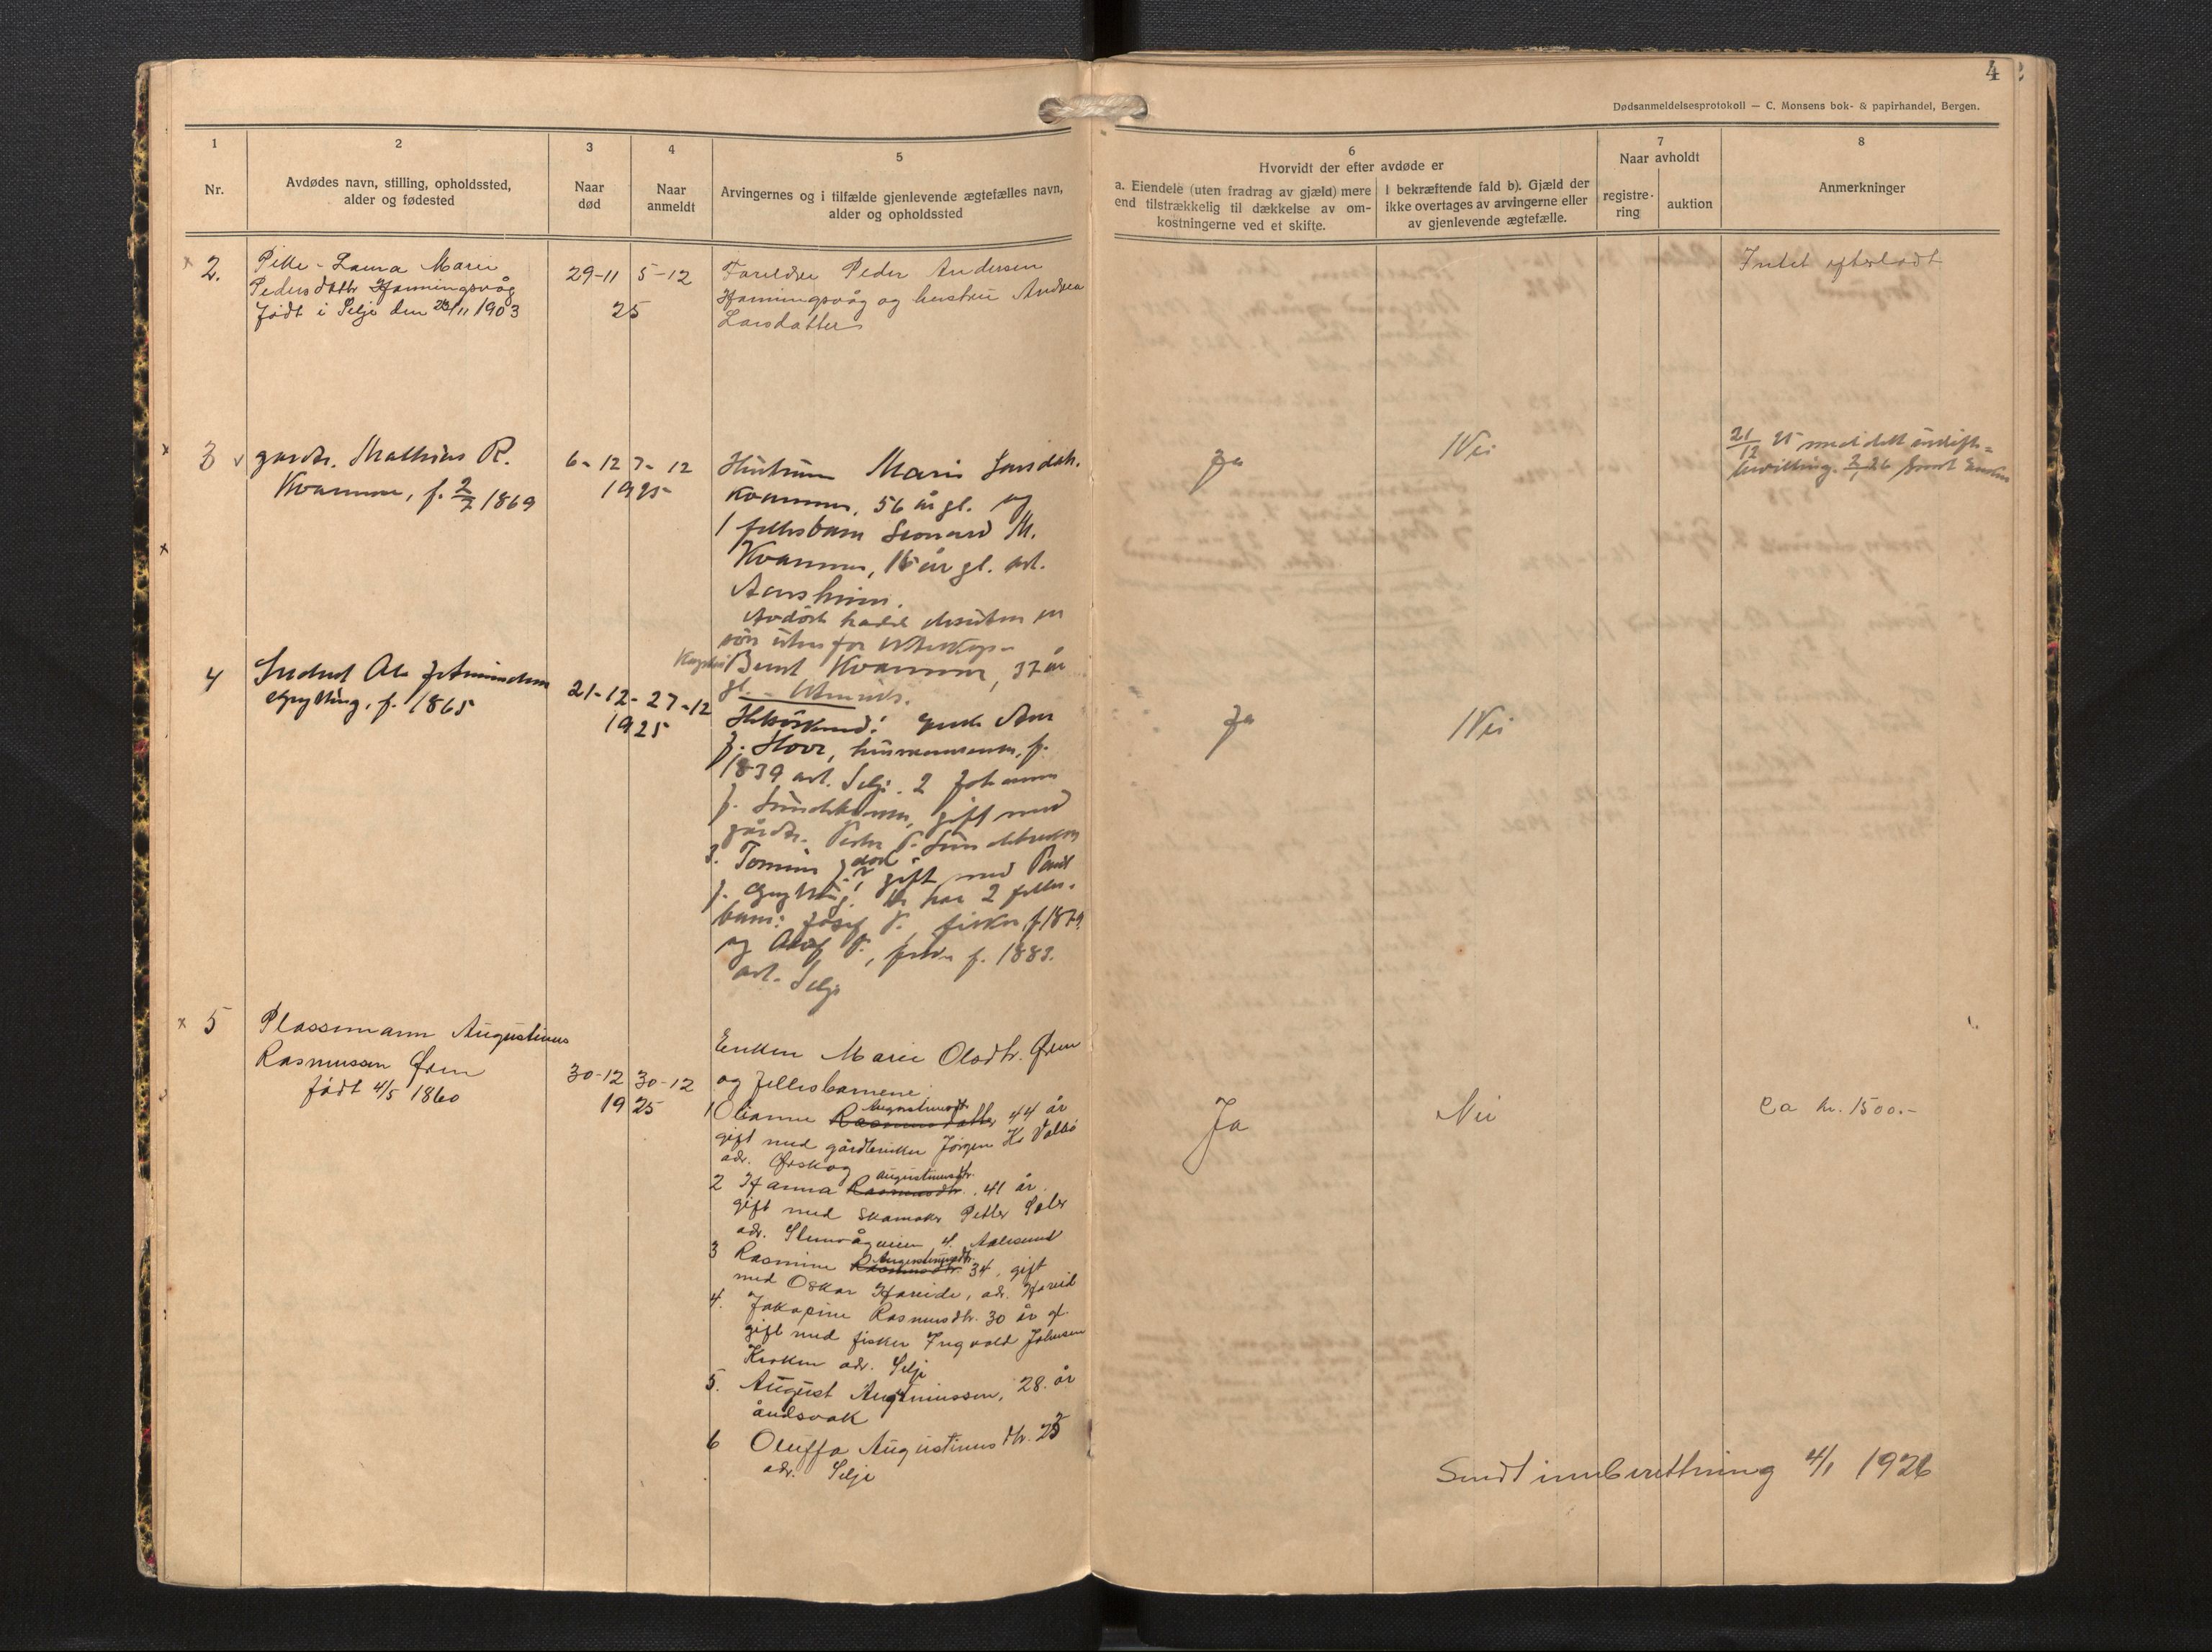 4
Dødsanmeldelsesprotokoll — C. Monsens bok- & papirhandel, Bergen.
1
2
3
4
5
6
7
8
Nr.
Avdødes navn, stilling, opholdssted,
alder og fødested
Naar
død
Naar
anmeldt
Arvingernes og i tilfælde gjenlevende ægtefælles navn,
alder og opholdssted
Hvorvidt der efter avdøde er
a. Eiendele (uten fradrag av gjæld) mere
end tilstrækkelig til dækkelse av om-
kostningerne ved et skifte.
I bekræftende fald b). Gjæld der
ikke overtages av arvingerne eller
av gjenlevende ægtefælle.
Naar avholdt
registre-
ring
auktion
Anmerkninger
x 2.
Pike - Laura Marie
Pedersdatter Hamningsvåg
født i Selje den /11 1903
29-11
5-12
25
Foreldre Peder Andersen
Hamningsvåg og hustru Andrea
Larsdatter
Intet efterladt
x 3
gardbr. Mathias R.
Kvamme, f. 2/7 1869
6-12
7-12
1925
Hustruen Marie
Kvamme, 56 år gl. og
1 fellesbarn Leonard M.
Kvamme, 16 år gl. ad.
Aarsheim.
Avdøde hadde desuten en
søn utenfor ekteskap -
Bernt Kvamme, 37 år
gl. -
Ja
Nei
21/12 25 meddelt uskifte-
bevilling.
4
f. 1865
21-12-
27-12
1925
Helsøsken: enke Ane
J. Hove, f.
1839 ad. Selje. 2 Johanne
J. gift med
gårdbr. Peder P.
3. død gift med
J. De har 2 felles-
barn: Josef P. fisker, f. 1879
og P., f. 1883.
ad. Selje
Ja
Nei
x 5
Plassmann Augustinus
Rasmussen Ørem
født 4/5 1860
30-12
30-12
1925
Enken Marie Olsdtr. Ørem
og fellesbarnene
Augustinusdt.
1 Olianne Rasmusdatter 44 år
gift med gårdbruker Jørgen K. Valbø
adr. Ørskog
Augustinusdtr.
2 Hanna Rasmusdtr. 41 år.
gift med skomaker Petter
adr. 4. Aalesund
Augustinusdtr.
3 Rasmine Rasmusdtr. 34, gift
med Oskar Hareide, adr. Hareid
4. Jakopine Rasmusdtr. 30 år gl.
gift med fisker Ingvald Johnsen
Kroken adr. Selje
5. August Augustinussen, 28. år
åndsvak
6 Oluffa Augustinusdtr. 23
adr. Selje
Ja
Nei
Ca kr. 1500.-
Sendt innberetning 4/1 1926